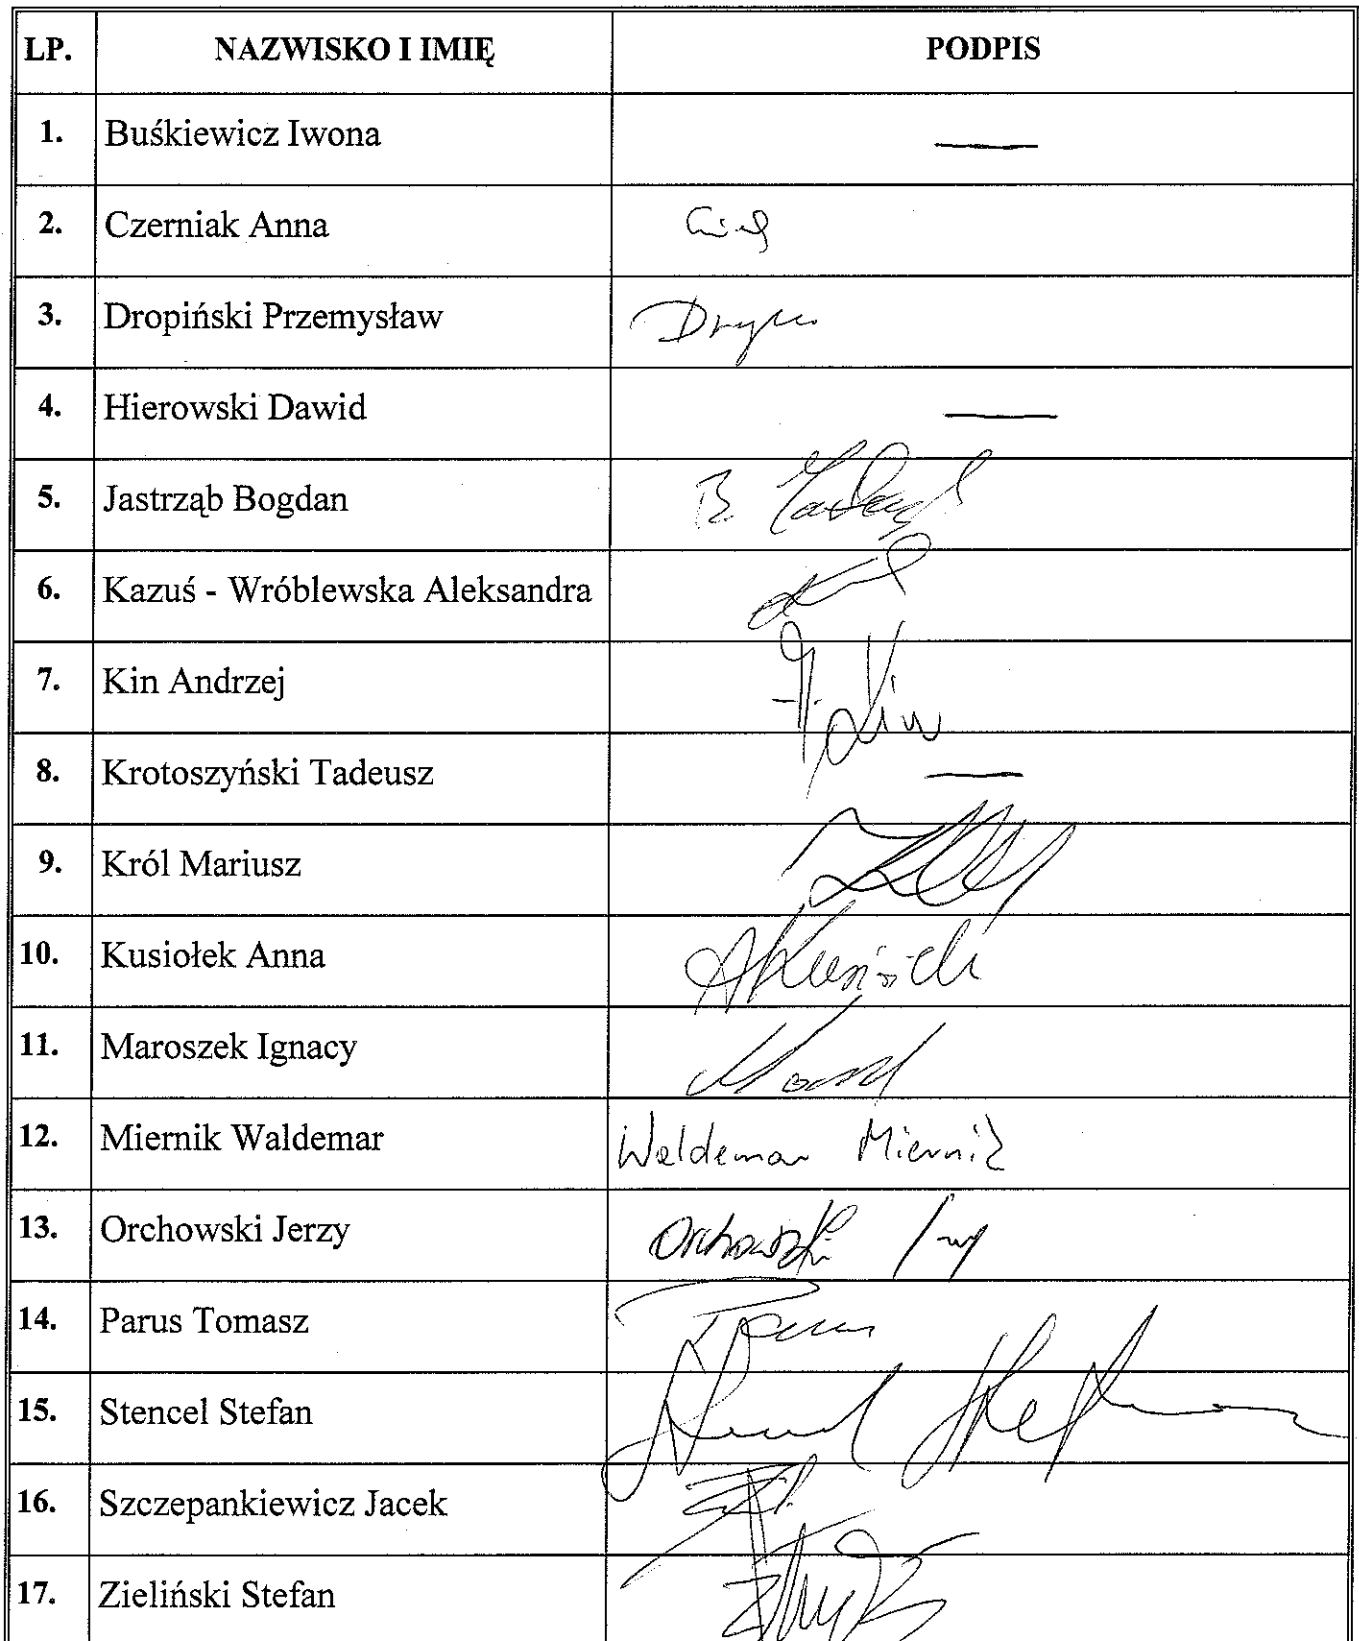 LP. NAZWISKO I IMIĘ PODPIS
1. Buśkiewicz Iwona —
2. Czerniak Anna
3. Dropiński Przemysław
4. Hierowski Dawid —
5. Jastrząb Bogdan B.
6. Kazuś - Wróblewska Aleksandra
7. Kin Andrzej Kin
8. Krotoszyński Tadeusz —
9. Król Mariusz
10. Kusiołek Anna
11. Maroszek Ignacy
12. Miernik Waldemar Waldemar Miernik
13. Orchowski Jerzy Orchowski
14. Parus Tomasz
15. Stencel Stefan
16. Szczepankiewicz Jacek
17. Zieliński Stefan